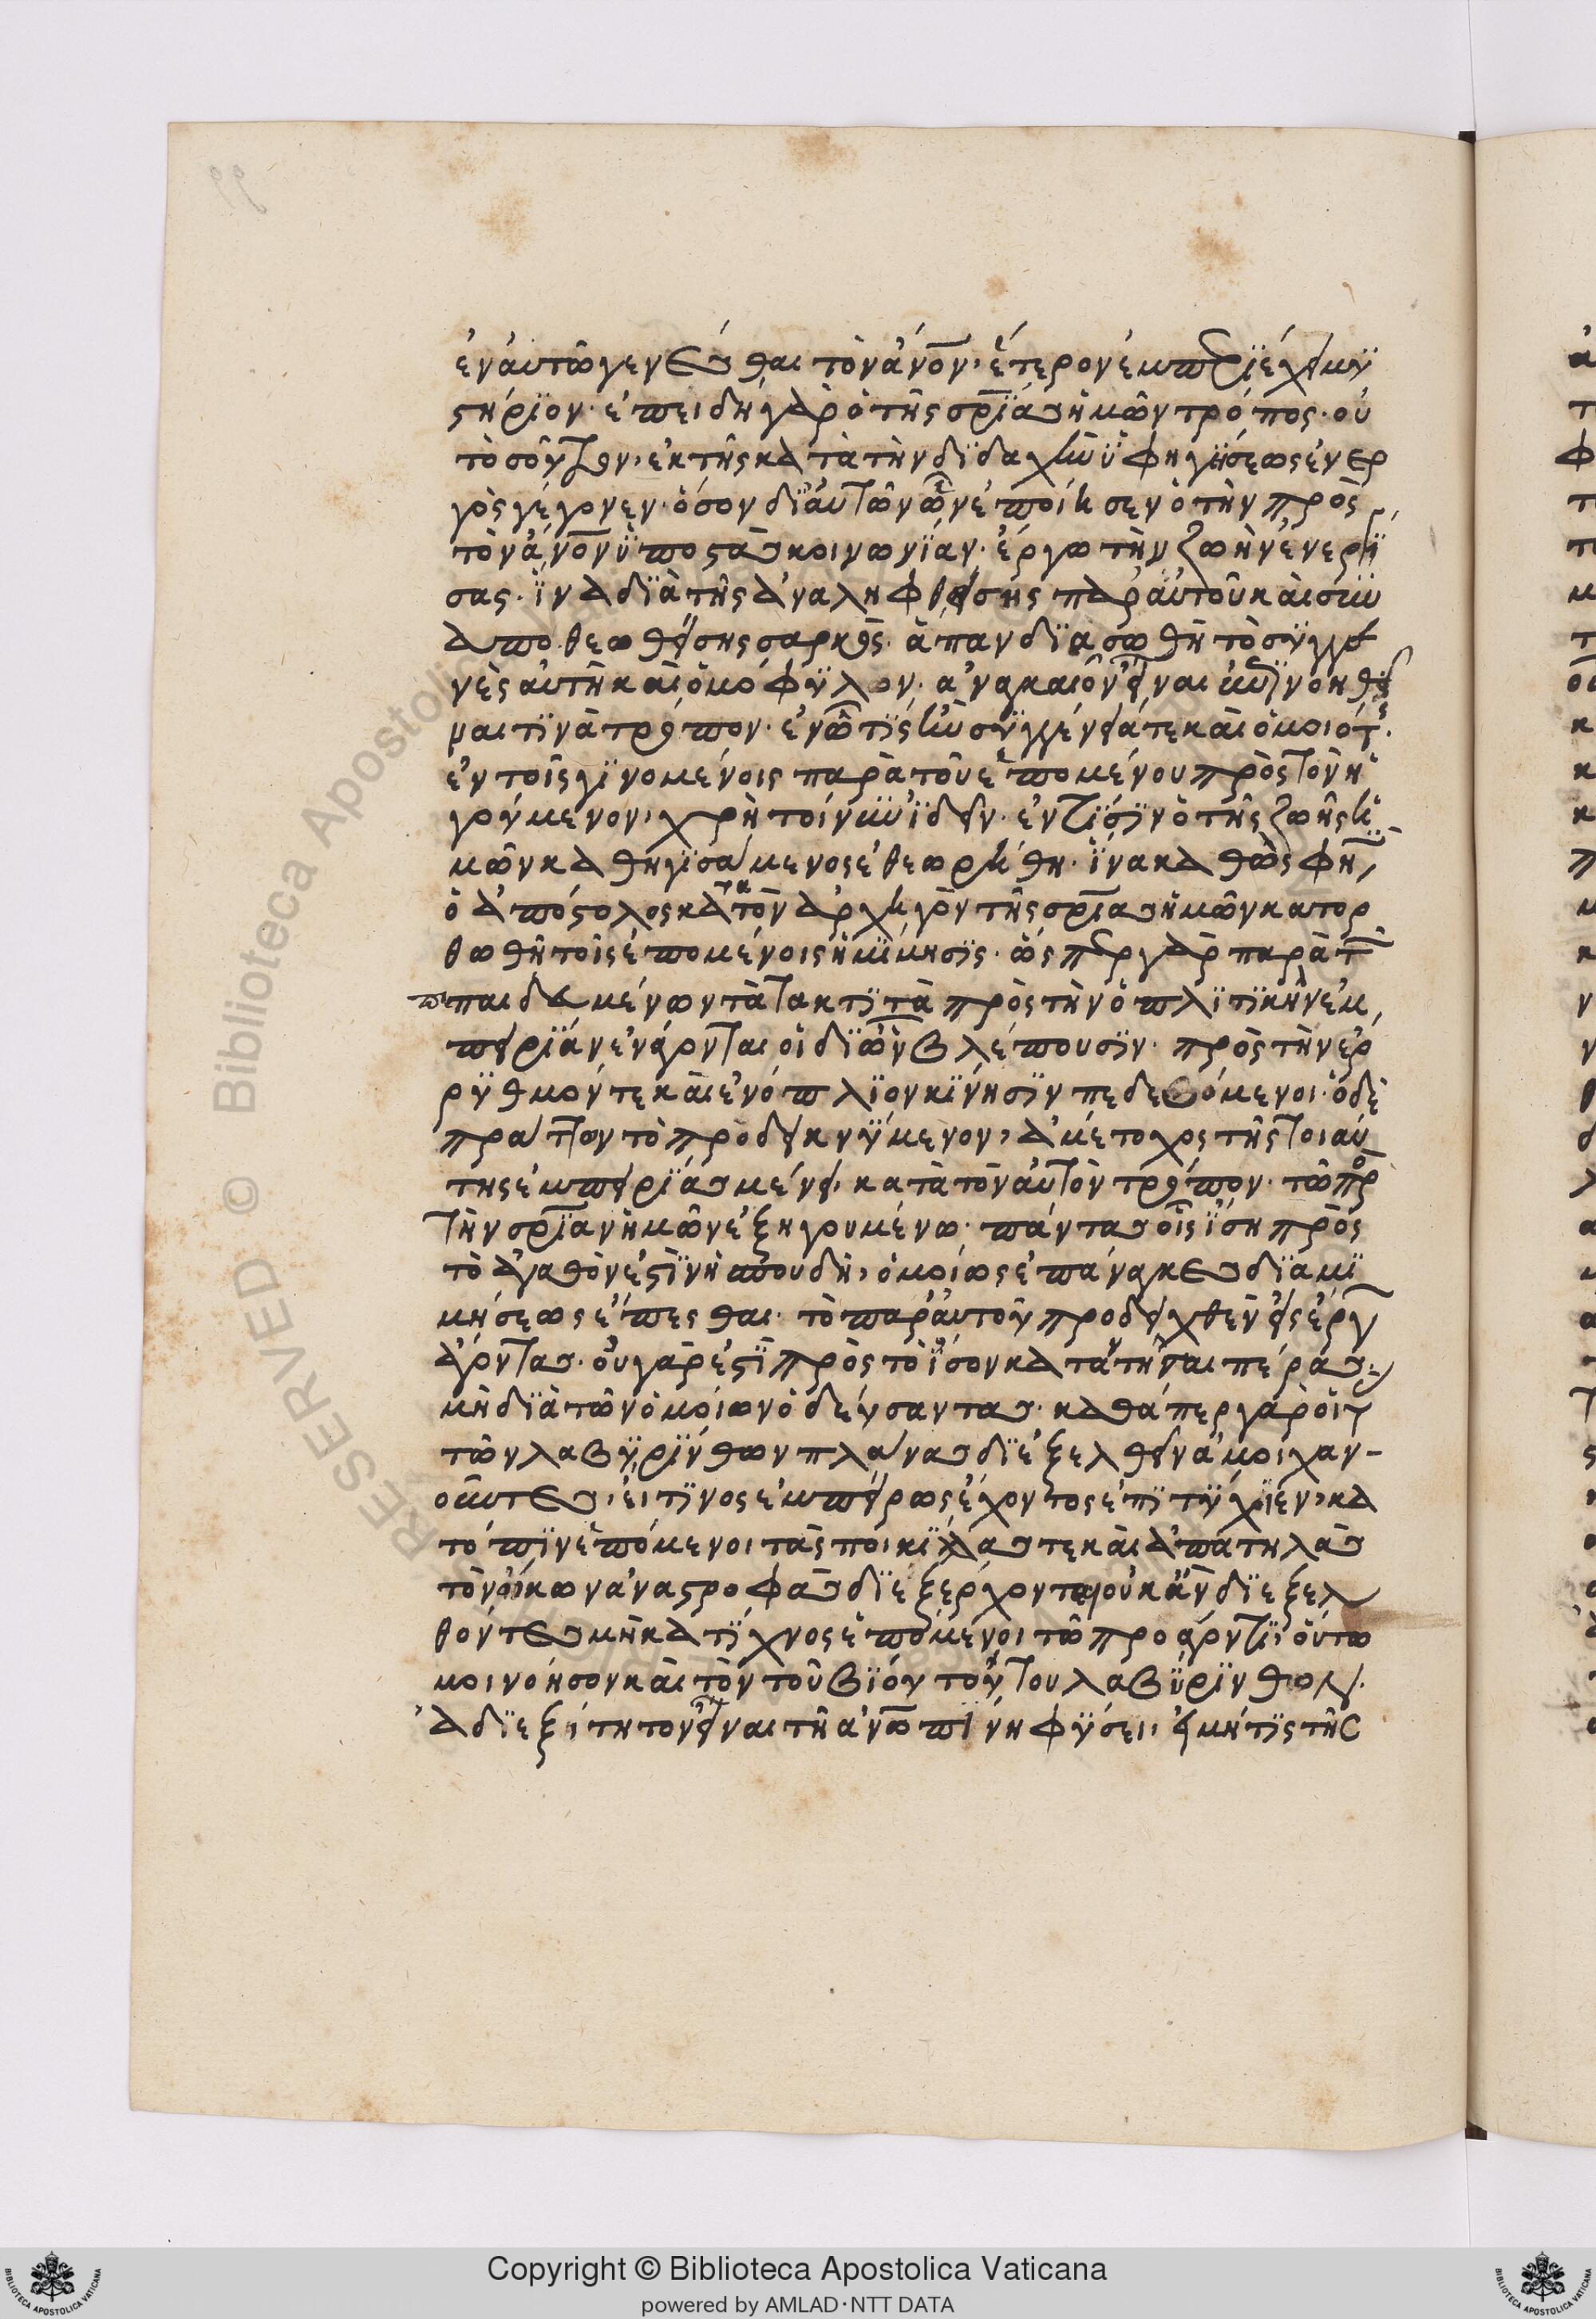 ἐν αὐτῶ γενέσθαι τὸν ἄνον, ἕτερον ἐμπεριέχει μυ
στήριον. ἐπειδὴ γὰρ ὁ τῆς σρίας ἡμῶν τρόπος. οὐ
τοσοῦτον, ἐκ τῆς κατὰ τὴν διδαχὴν ὑφηγήσεως ἐνερ
γὸς γέγονεν. ὅσον δι αὐτῶν ὧν ἐποίησεν ὁ τὴν πρὸς
τὸν ἄνον ὑποστὰς κοινωνίαν. ἔργω τὴν ζωὴν ἐνεργή
σας. ἵνα διὰ τῆς ἀναληφθείσης παρ αὐτοῦ καὶ συν
αποθεωθείσης σαρκὸς. ἅπαν διασωθῆ τὸ συγγε
νὲς αὐτῆ καὶ ὁμόφυλον. ἀναγκαῖον εἶναι
τινὰ τρόπον. ἐν ᾧ τις ἦν συγγένειά τε καὶ ὁμοιότης.
ἐν τοῖς γινομένοις παρὰ τοῦ ἑπομένου πρὸς τὸν ἡ
γούμενον, χρὴ τοίνυν ἰδεῖν. ἐν τίσιν ὁ τῆς ζωῆς ἡ
μῶν καθηγησάμενος ἐθεωρήθη. ἵνα καθώς φησιν
ὁ ἀπόστολος κατὰ τὸν ἀρχηγὸν τῆς σρίας ἡμῶν κατορ
θωθῆ τοῖς ἑπομένοις ἡ μίμησις. ὥσπερ γὰρ παρὰ τῶν
πεπαιδευμένων τὰ τακτικὰ πρὸς τὴν ὁπλιτικὴν ἐμ
πειρίαν ἐνάγονται οἱ δι ὧν βλέπουσιν. πρὸς τὴν εὐ
ρυθμόν τε καὶ ἐνόπλιον κίνησιν πεδευόμενοι. ὁ δὲ
πράττων τὸ προδεικνύμενον, ἀμέτοχος τῆς τοιαύ
της ἐμπειρίας μένει, κατὰ τὸν αὐτὸν τρόπον. τῶ πρὸς
τὴν σρίαν ἡμῶν ἐξηγουμένω. πάντας οἷς ἴση πρὸς
τὸ ἀγαθὸν ἐστὶν ἡ σπουδὴ, ὁμοίως ἐπάναγκες διὰ μι
μήσεως ἕπεσθαι. τὸ παρ αὐτοῦ προδειχθὲν εἰς ἔργον
ἄγοντας. οὐ γὰρ ἐστι πρὸς τὸ ἴσον καταντῆσαι πέρας.
μὴ διὰ τῶν ὁμοίων ὁδεύσαντας. καθάπερ γὰρ οἱ τ
τῶν λαβυρίνθων πλάνας διεξελθεῖν ἀμοιχαν-
οῦντες, εἴ τινος ἐμπείρως ἔχοντος ἐπιτύχιεν, κα
τόπιν ἑπόμενοι τὰς ποικίλας τε καὶ ἀπατηλὰς
τὸν οἴκων ἀναστροφὰς διεξέρχονται οὐκ ἂν διεξελ
θόντες μὴ κατίχνος ἑπόμενοι τῶ προάγοντι, οὕτω
μοι νόησον καὶ τὸν τοῦ βίου τούτου λαβύρινθον.
ἀδιεξίτητον εἶναι τῆ ἀνωπίνη φύσει, εἰ μή τις τῆς
Copyright © Biblioteca Apostolica Vaticana
powered by AMLAD·NTT DATA